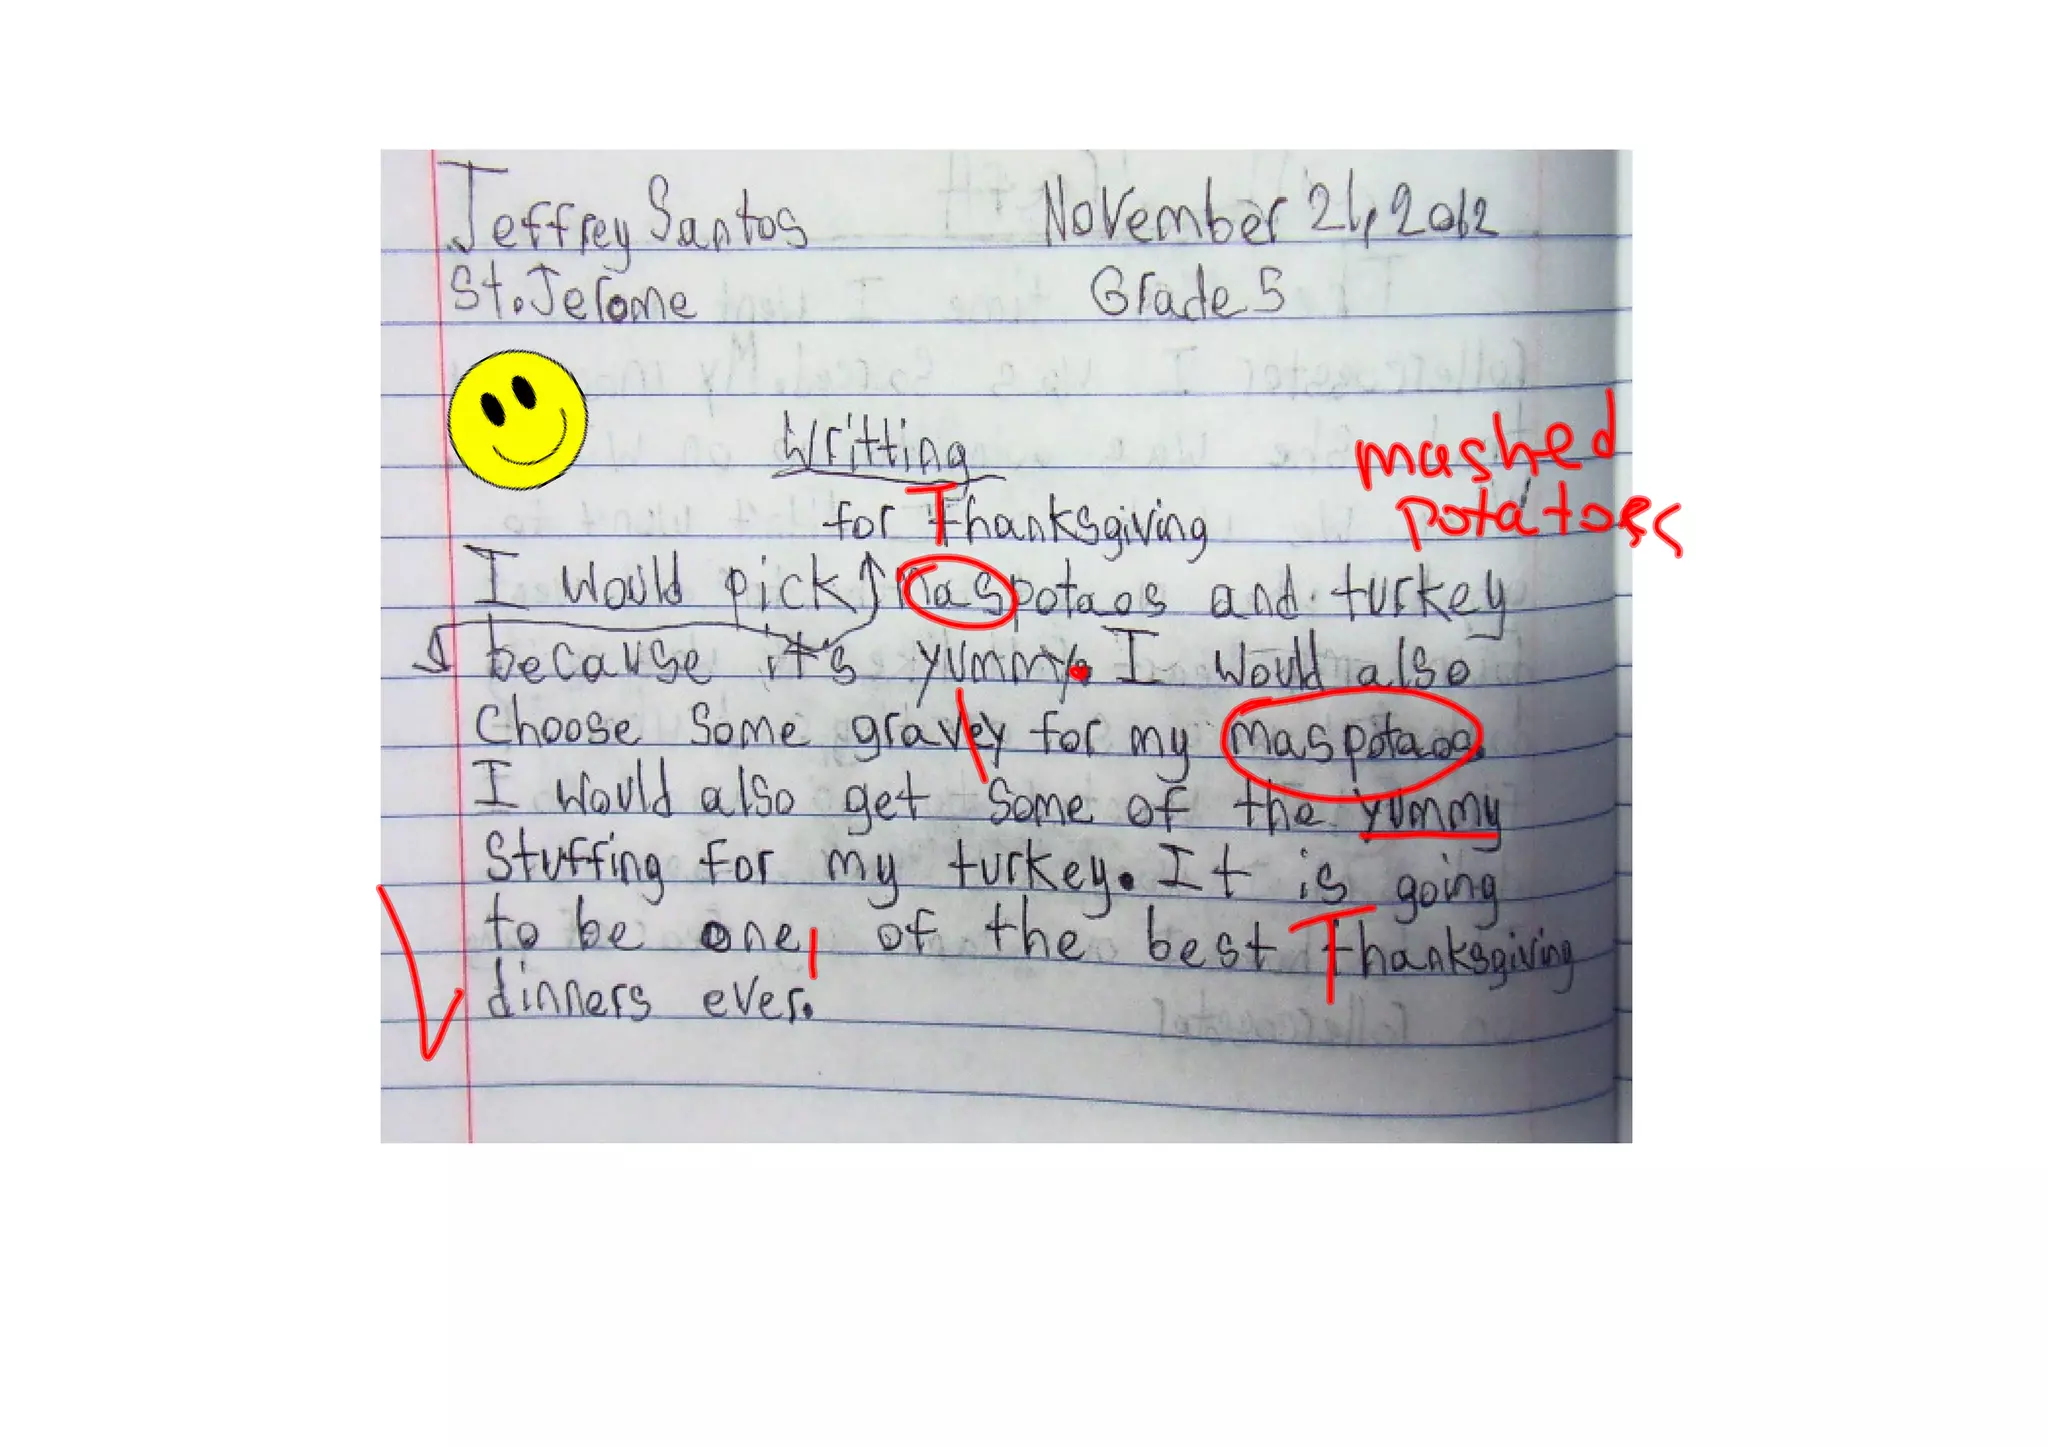 Jeffrey Santos November 21, 2012
St. Jerome Grade 5
Writting
mashed
potatoes
for Thanksgiving
I would pick maspotaos and turkey
because it's yummy. I would also
choose some gravey for my maspotaos.
I would also get some of the yummy
stuffing for my turkey. It is going
to be one, of the best Thanksgiving
dinners ever.